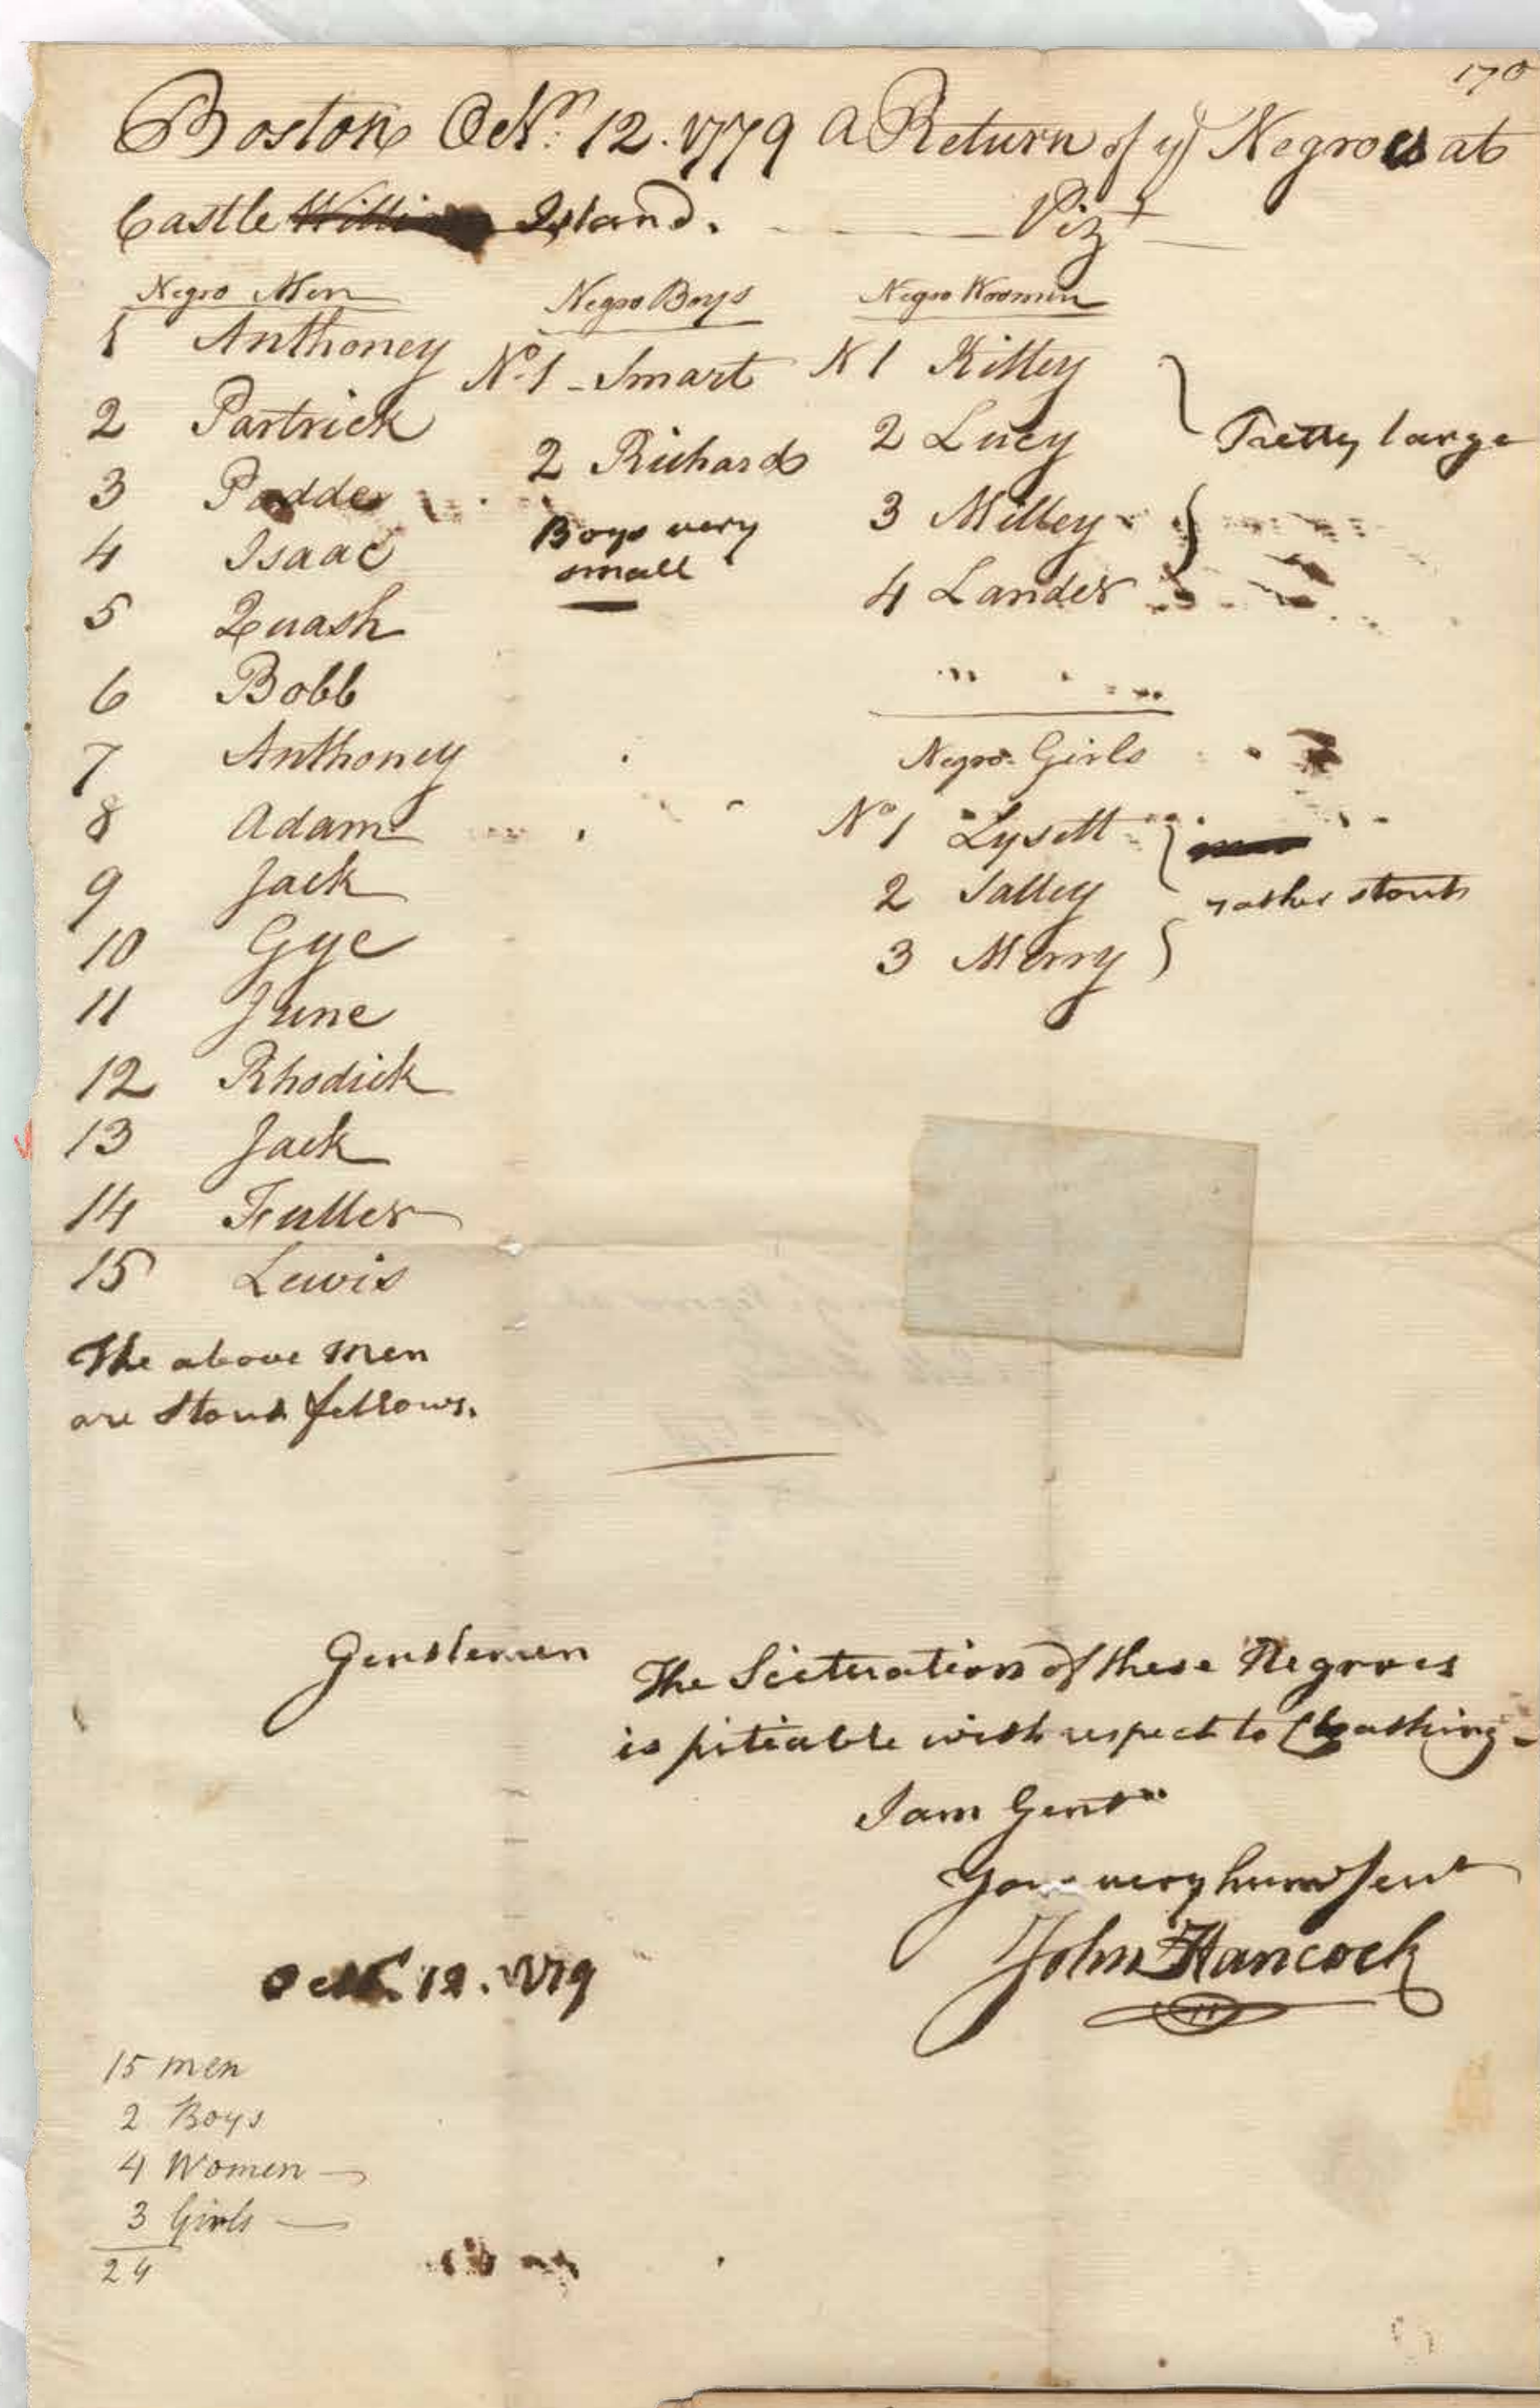 170
Boston Octr. 12. 1779 A Return of ye Negroes at
Castle Island. Vizt
Negro Men
1 Anthoney
2 Partrick
3 Padde
4 Isaac
5 Quash
6 Bobb
7 Anthoney
8 Adam
9 Jack
10 Gye
11 June
12 Rhodick
13 Jack
14 Fuller
15 Lewis
The above Men
are stout fellows.
Negro Boys
No. 1 - Smart
2 Richard
Boys very
small
Negro Woomin
N 1 Kittey
2 Lucy
Pretty large
3 Milley
4 Lander
Negro Girls
No 1 Lysett
2 Salley
rather stout
3 Merry
Gentlemen
The Scituation of these Negroes
is pitiable with respect to Cloathing -
I am Gentn
Your very hum Servt
John Hancock
Octr. 12. 1779
15 men
2 Boys
4 Women
3 Girls
24